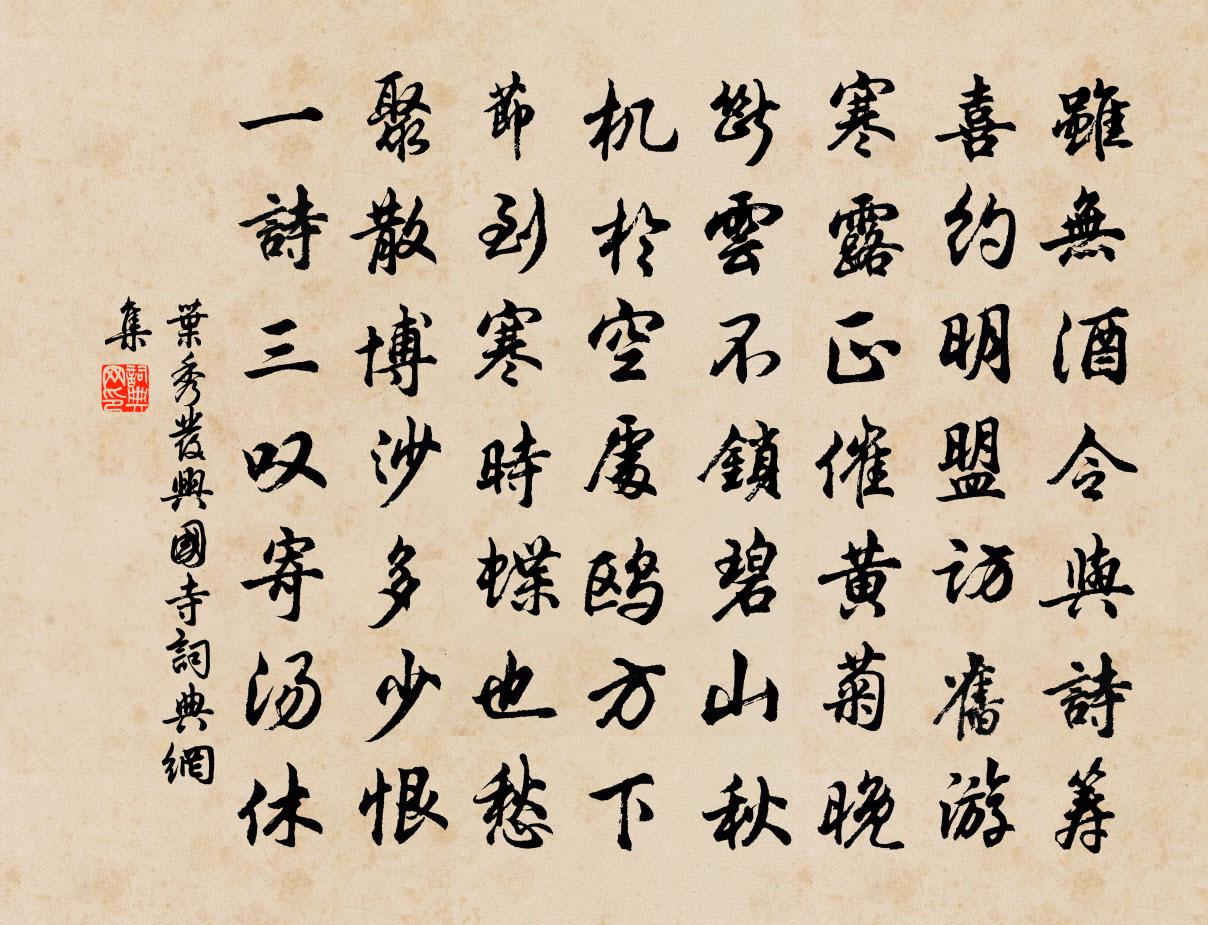 雖無酒令與詩筹
喜約明盟訪舊游
寒露正催黄菊晚
断雲不鎖碧山秋
机於空處鸥方下
節到寒時蝶也愁
聚散博沙多少恨
一詩三叹寄汤休
葉秀發興國寺詞典網
集
詞典网印